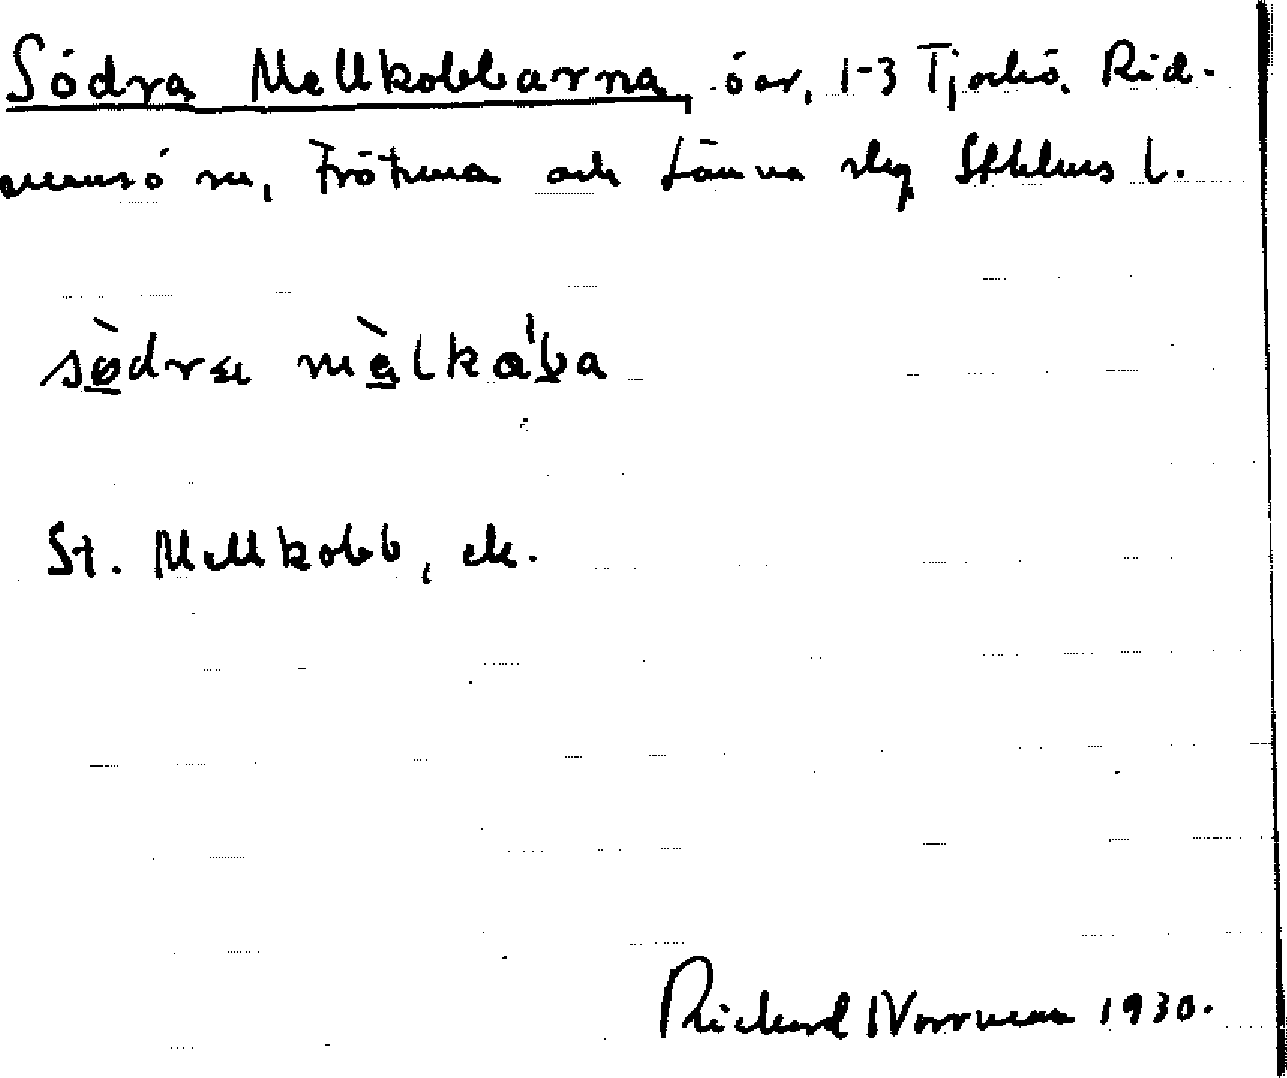 Södra Mellkobbarna, öar, 1-3 Tjockö, Rid-
mansö sn, Frötuna och Länna slg Sthlms l.
sø̀dra mæ̀lkɑ'ba
St. Mellkobb, ek.
Rickard Norrman 1930.